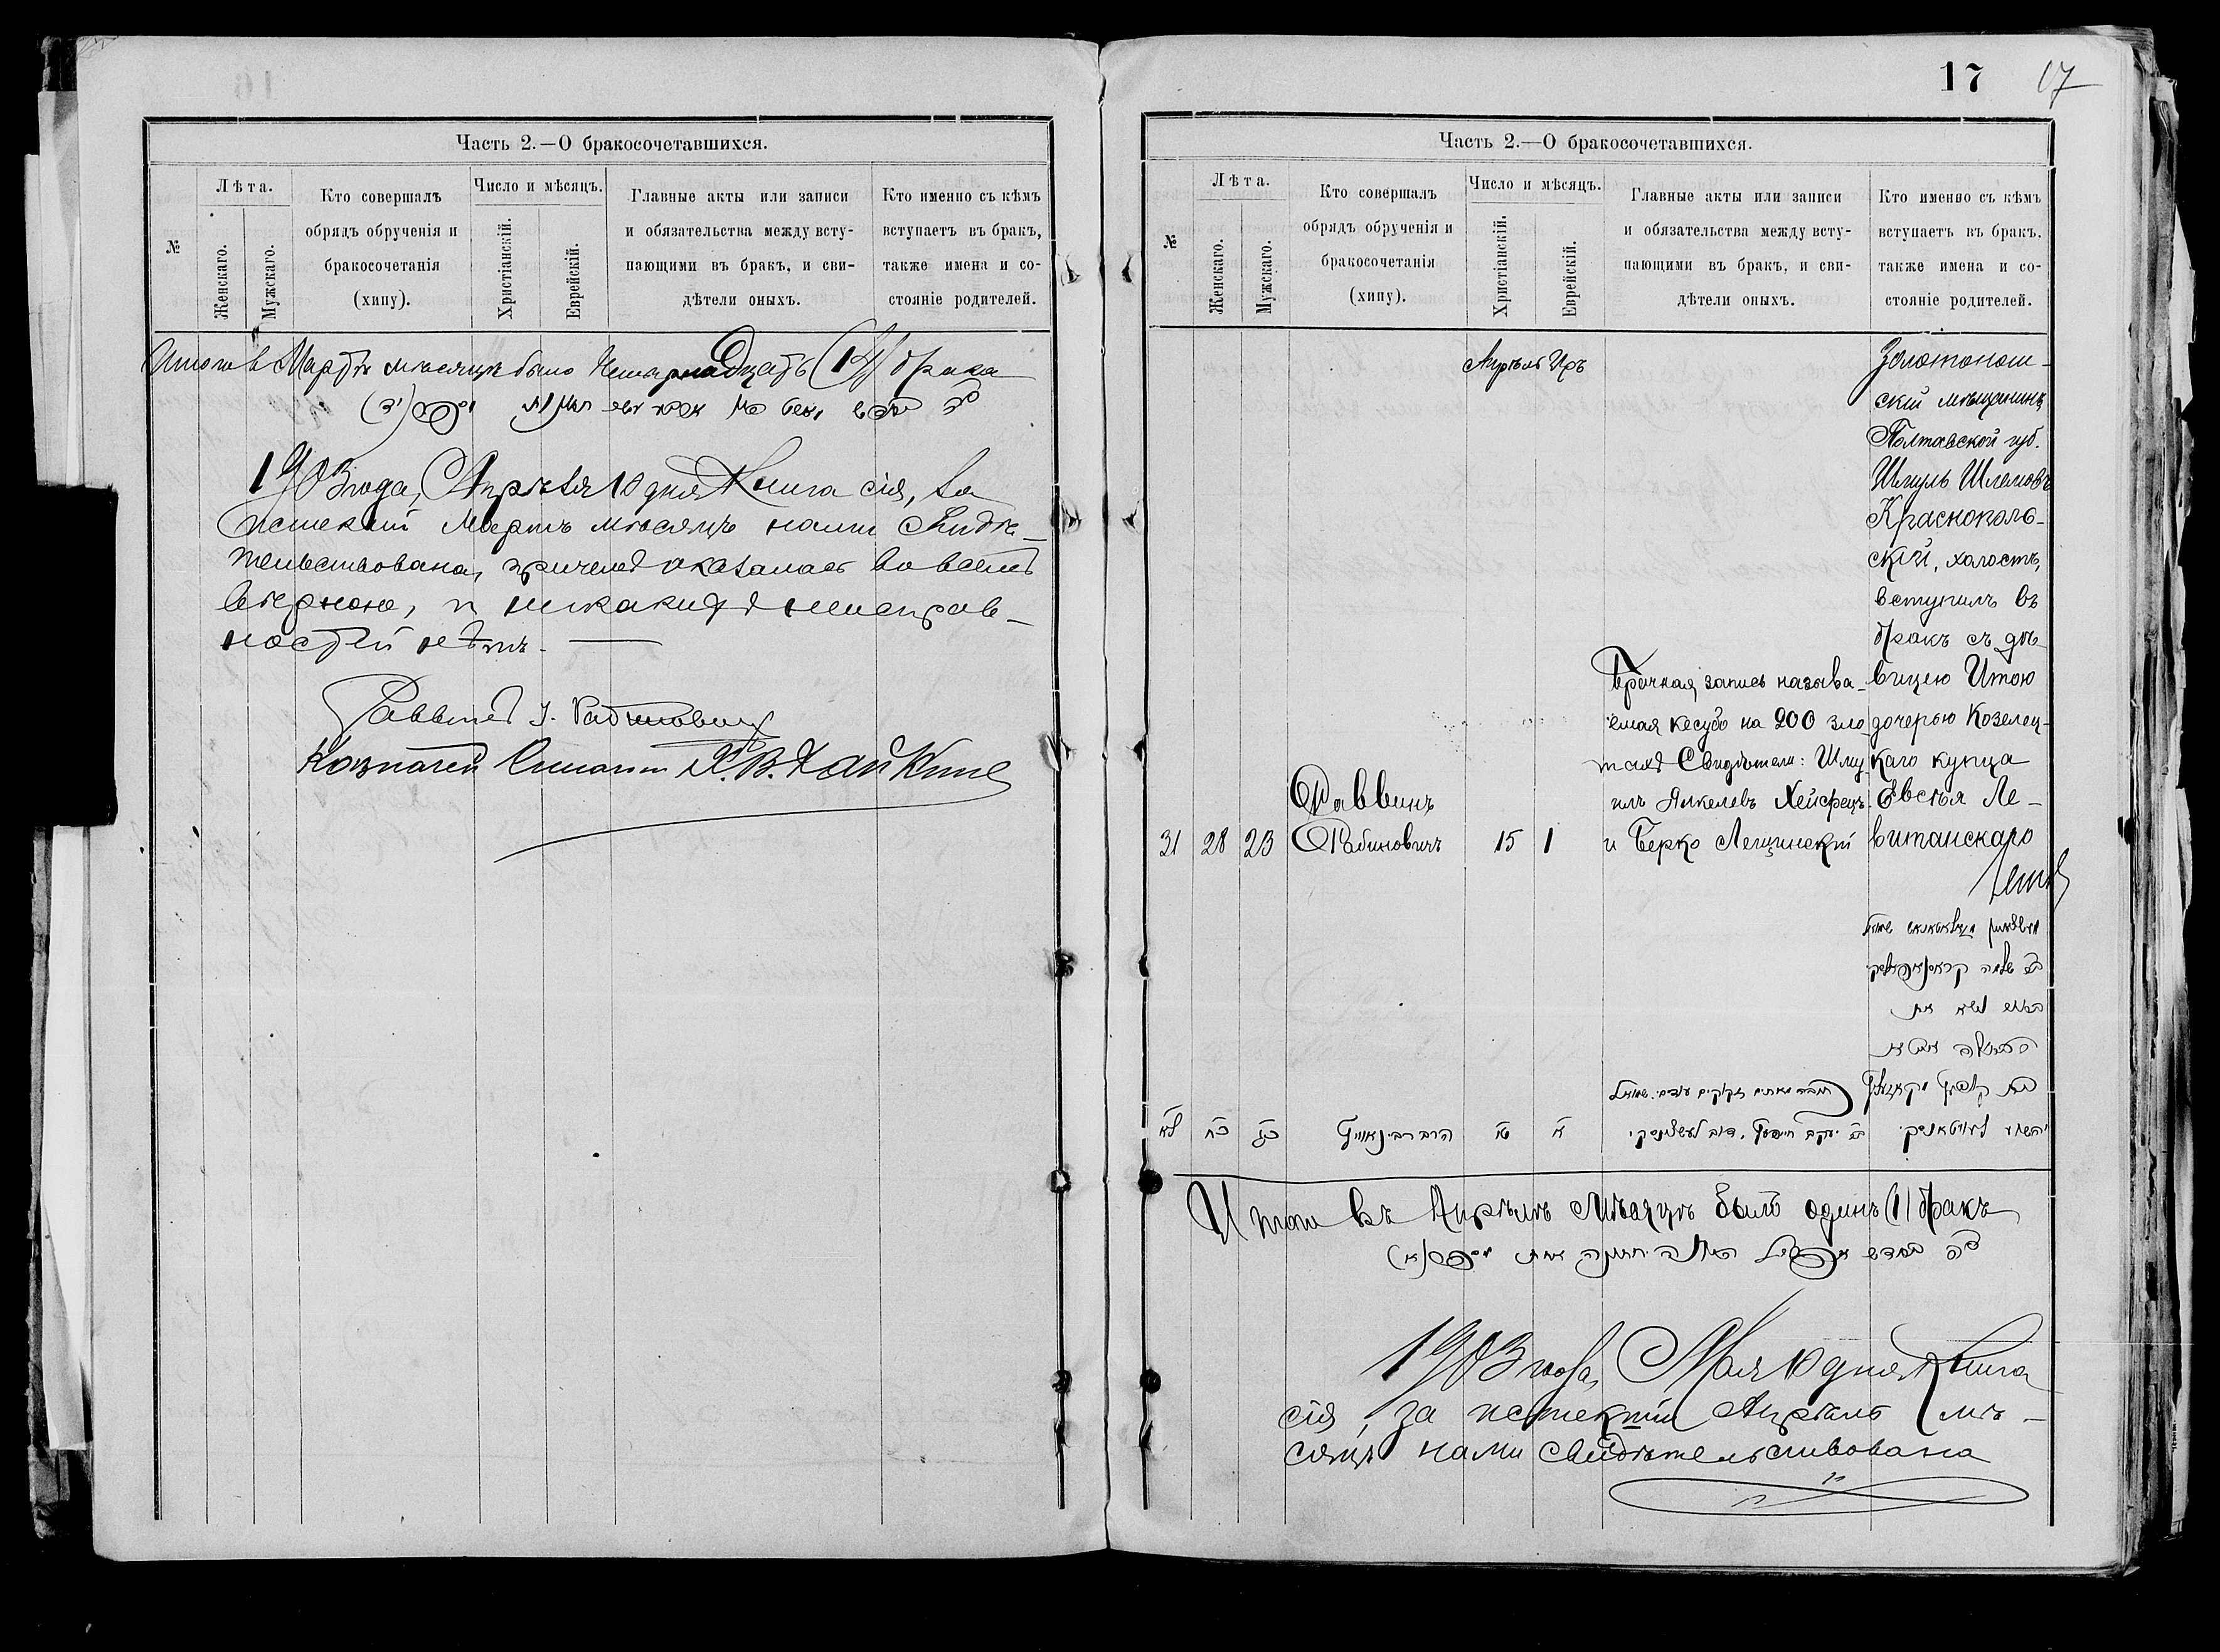 Часть 2.—О бракосочетавшихся.
№
Лѣта.
Женскаго.
Мужскаго.
Кто совершалъ
обрядъ обрученія и
бракосочетанія
(хипу).
Число и мѣсяцъ.
Христіанскій.
Еврейскій.
Главные акты или записи
и обязательства между всту-
пающими въ бракъ, и сви-
дѣтели оныхъ.
Кто именно съ кѣмъ
вступаетъ въ бракъ,
также имена и со-
стояніе родителей.
Итого в Мартѣ мѣсяцѣ было Четырнадцать (14) брака
1903 года, Апрѣля 10 дня Книга сія, за
истекшій Мартъ мѣсяцъ нами Свидѣ-
тельствована, причемъ оказалась во всемъ
вѣрною, и никакихъ неисправ-
ностей нѣтъ.
Раввинъ I. Рабинович
Казначей Синагоги Х. В. Хайкинъ
17 17
Часть 2.—О бракосочетавшихся.
№
Лѣта.
Женскаго.
Мужскаго.
Кто совершалъ
обрядъ обрученія и
бракосочетанія
(хипу).
Число и мѣсяцъ.
Христіанскій.
Еврейскій.
Главные акты или записи
и обязательства между всту-
пающими въ бракъ, и сви-
дѣтели оныхъ.
Кто именно съ кѣмъ
вступаетъ въ бракъ.
также имена и со-
стояніе родителей.
31
28
23
Раввинъ
Рабиновичъ
Апрѣль Иръ
15 1
Брачная запись называ-
емая кесубо на 200 зло
тыхъ Свидѣтели: Шму
илъ Янкелевъ Хейфецъ
и Берко Лещинскій
Золотонош-
скій мѣщанинъ
Полтавской губ.
Шмуль Шлемовъ
Краснополь-
скій, холостъ,
вступилъ въ
бракъ съ дѣ-
вицею Итою
дочерью Козелец-
каго купца
Евсѣя Ле-
витанскаго
בן שלמה קראסנאפאלסקי
לא
כח
כג
הרב רבינאוויץ
טו
א
כתובה מאתים זקוקים עדים. שמואל
בן יעקב חייפעץ. דוב לעשצינסקי
Итого въ Апрѣлѣ Мѣсяцѣ было одинъ (1) бракъ
1903 года, Мая 10 дня Книга
сія, за истекшій Апрѣль мѣ-
сяцъ нами свидѣтельствована